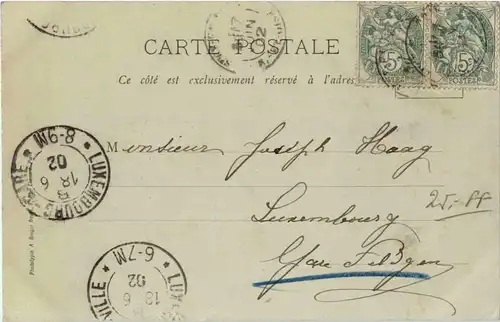 CARTE POSTALE
Ce côté est exclusivement réservé à l'adres
5c 5c
POSTES POSTES
Monsieur Joseph Haag
Luxembourg
Gare
25,-
LUXEMBOURG GARE * 8-9M *
18 6
02
LUX VILLE * 6-7M *
18 6
02